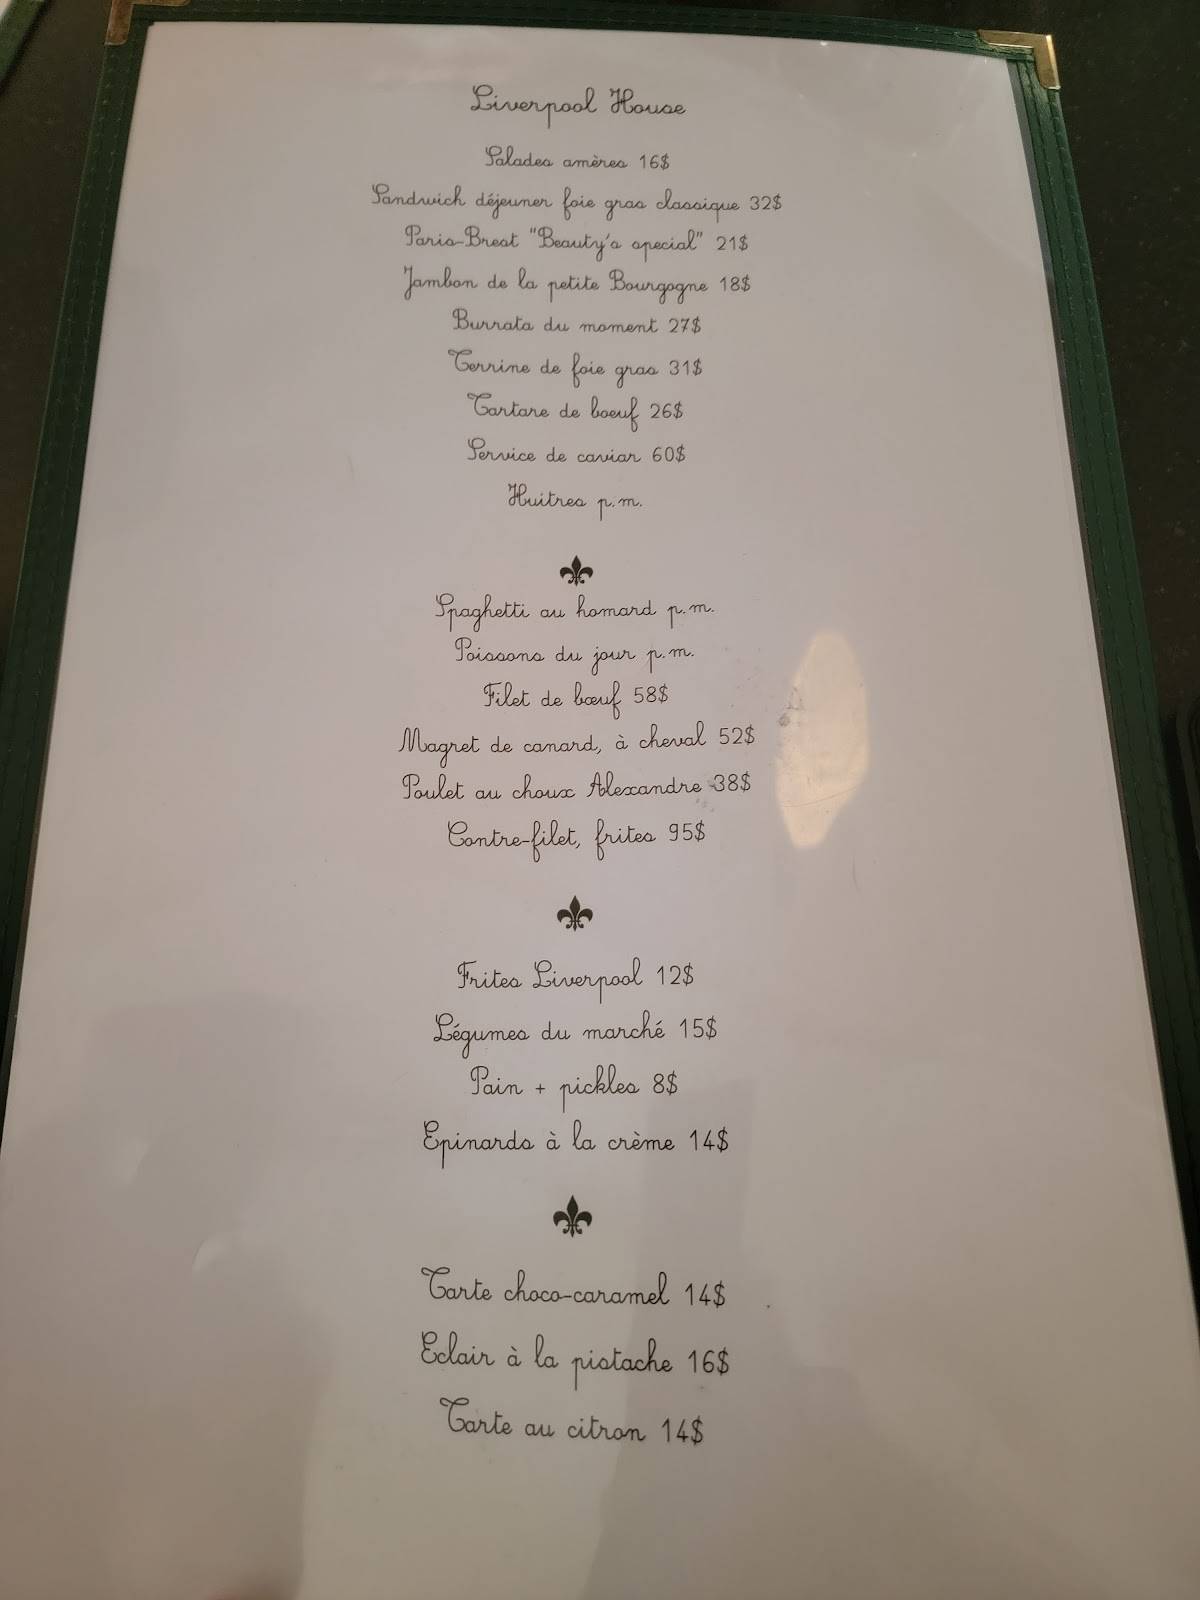 Liverpool House
Salades amères 16$
Sandwich déjeuner foie gras classique 32$
Paris-Brest "Beauty's special" 21$
Jambon de la petite Bourgogne 18$
Burrata du moment 27$
Terrine de foie gras 31$
Tartare de boeuf 26$
Service de caviar 60$
Huitres p.m.
Spaghetti au homard p.m.
Poissons du jour p.m.
Filet de bœuf 58$
Magret de canard, à cheval 52$
Poulet au choux Alexandre 38$
Contre-filet, frites 95$
Frites Liverpool 12$
Légumes du marché 15$
Pain + pickles 8$
Epinards à la crème 14$
Tarte choco-caramel 14$
Eclair à la pistache 16$
Tarte au citron 14$